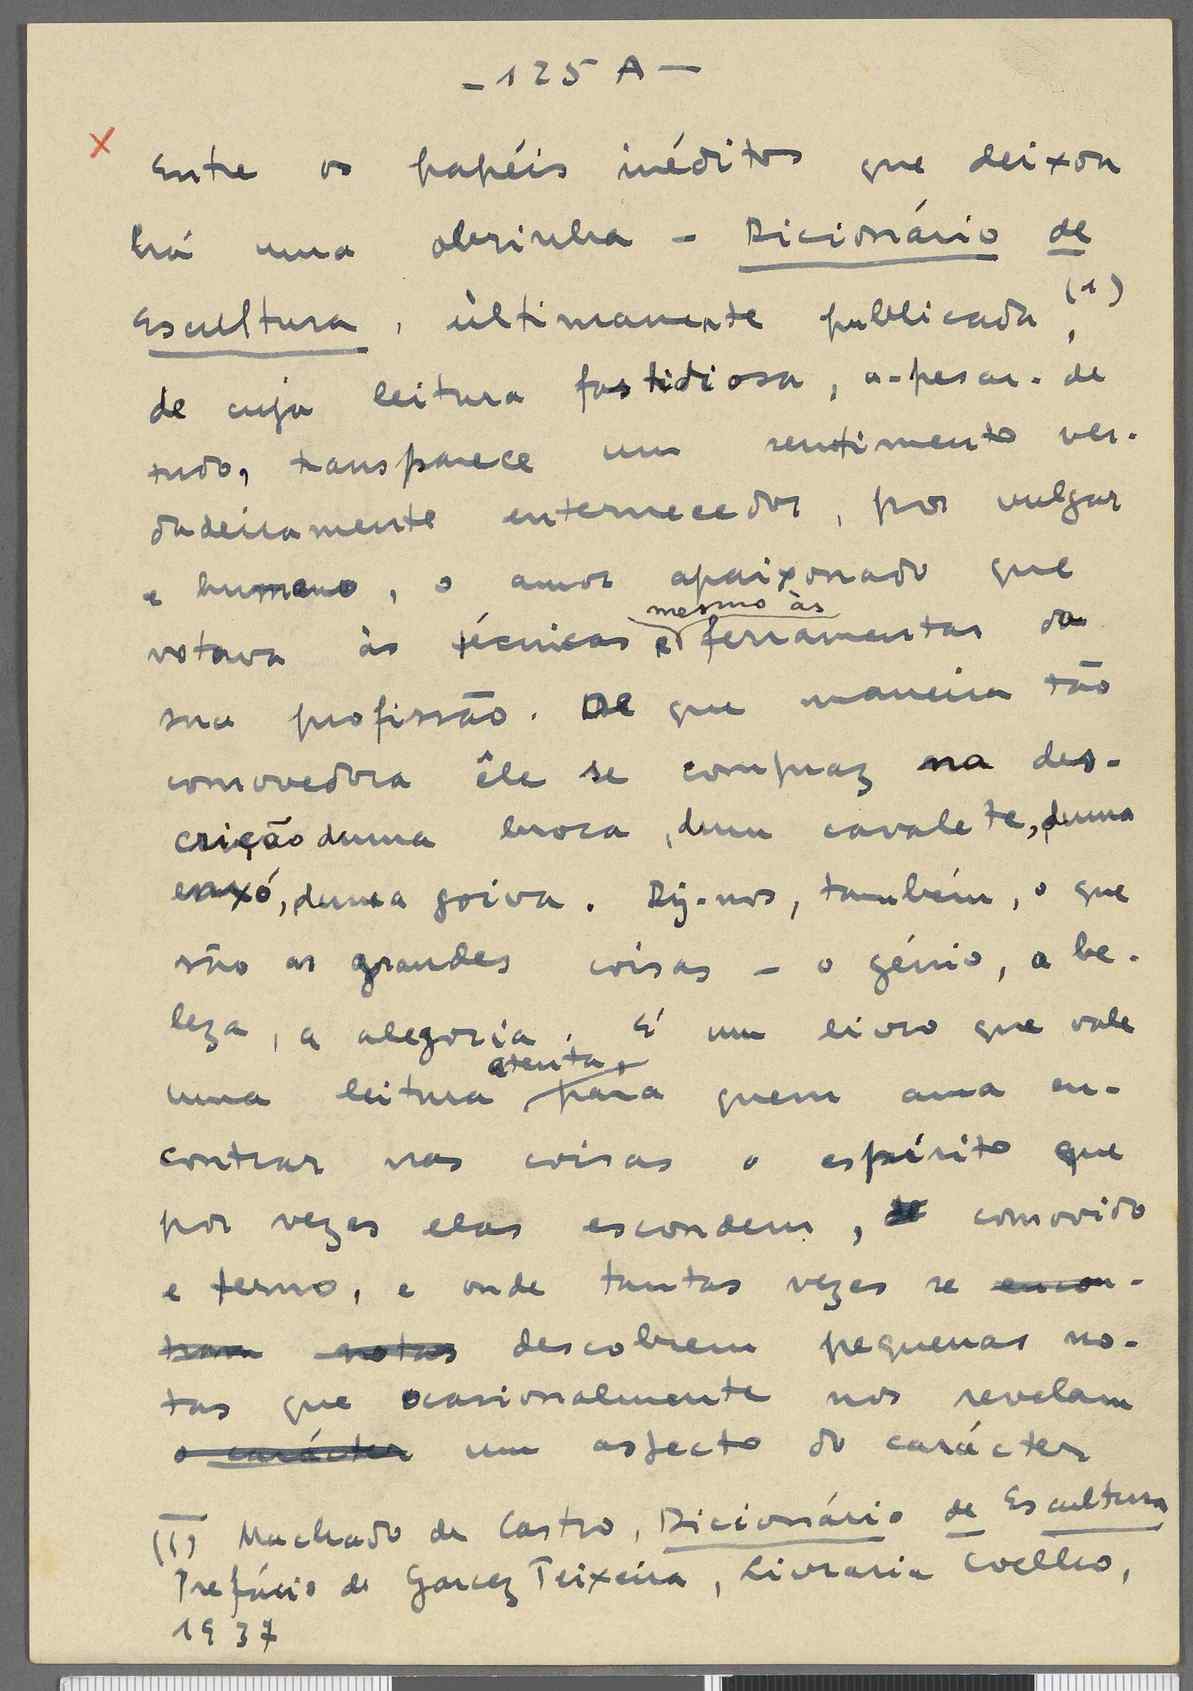 - 125 A -
x Entre os papéis inéditos que deixou
há uma obrinha - Dicionário de
Escultura, ùltimamente publicada (1),
de cuja leitura fastidiosa, a-pesar-de
tudo, transparece um sentimento ver-
dadeiramente enternecedor, por vulgar
e humano, o amor apaixonado que
votava às técnicas e mesmo às ferramentas da
sua profissão. De que maneira tão
comovedora êle se compraz na des-
crição duma broca, dum cavalete, duma
enxó, duma goiva. Diz-nos, também, o que
são as grandes coisas - o génio, a be-
leza, a alegoria. É um livro que vale
uma leitura atenta para quem ama en-
contrar nas coisas o espírito que
por vezes elas escondem, comovido
e terno, e onde tantas vezes se encon-
tram notas descobrem pequenas no-
tas que ocasionalmente nos revelam
o carácter um aspecto do carácter
(1) Machado de Castro, Dicionário de Escultura
Prefácio de Garcez Teixeira, Livraria Coelho,
1937